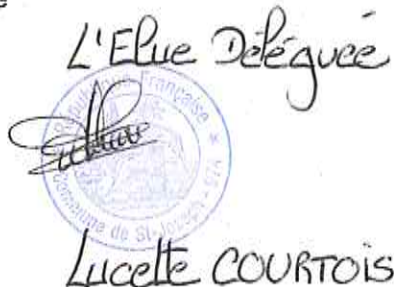 L'Elue Déléguée
République Française
Commune de St-Joseph - 974
Lucette COURTOIS